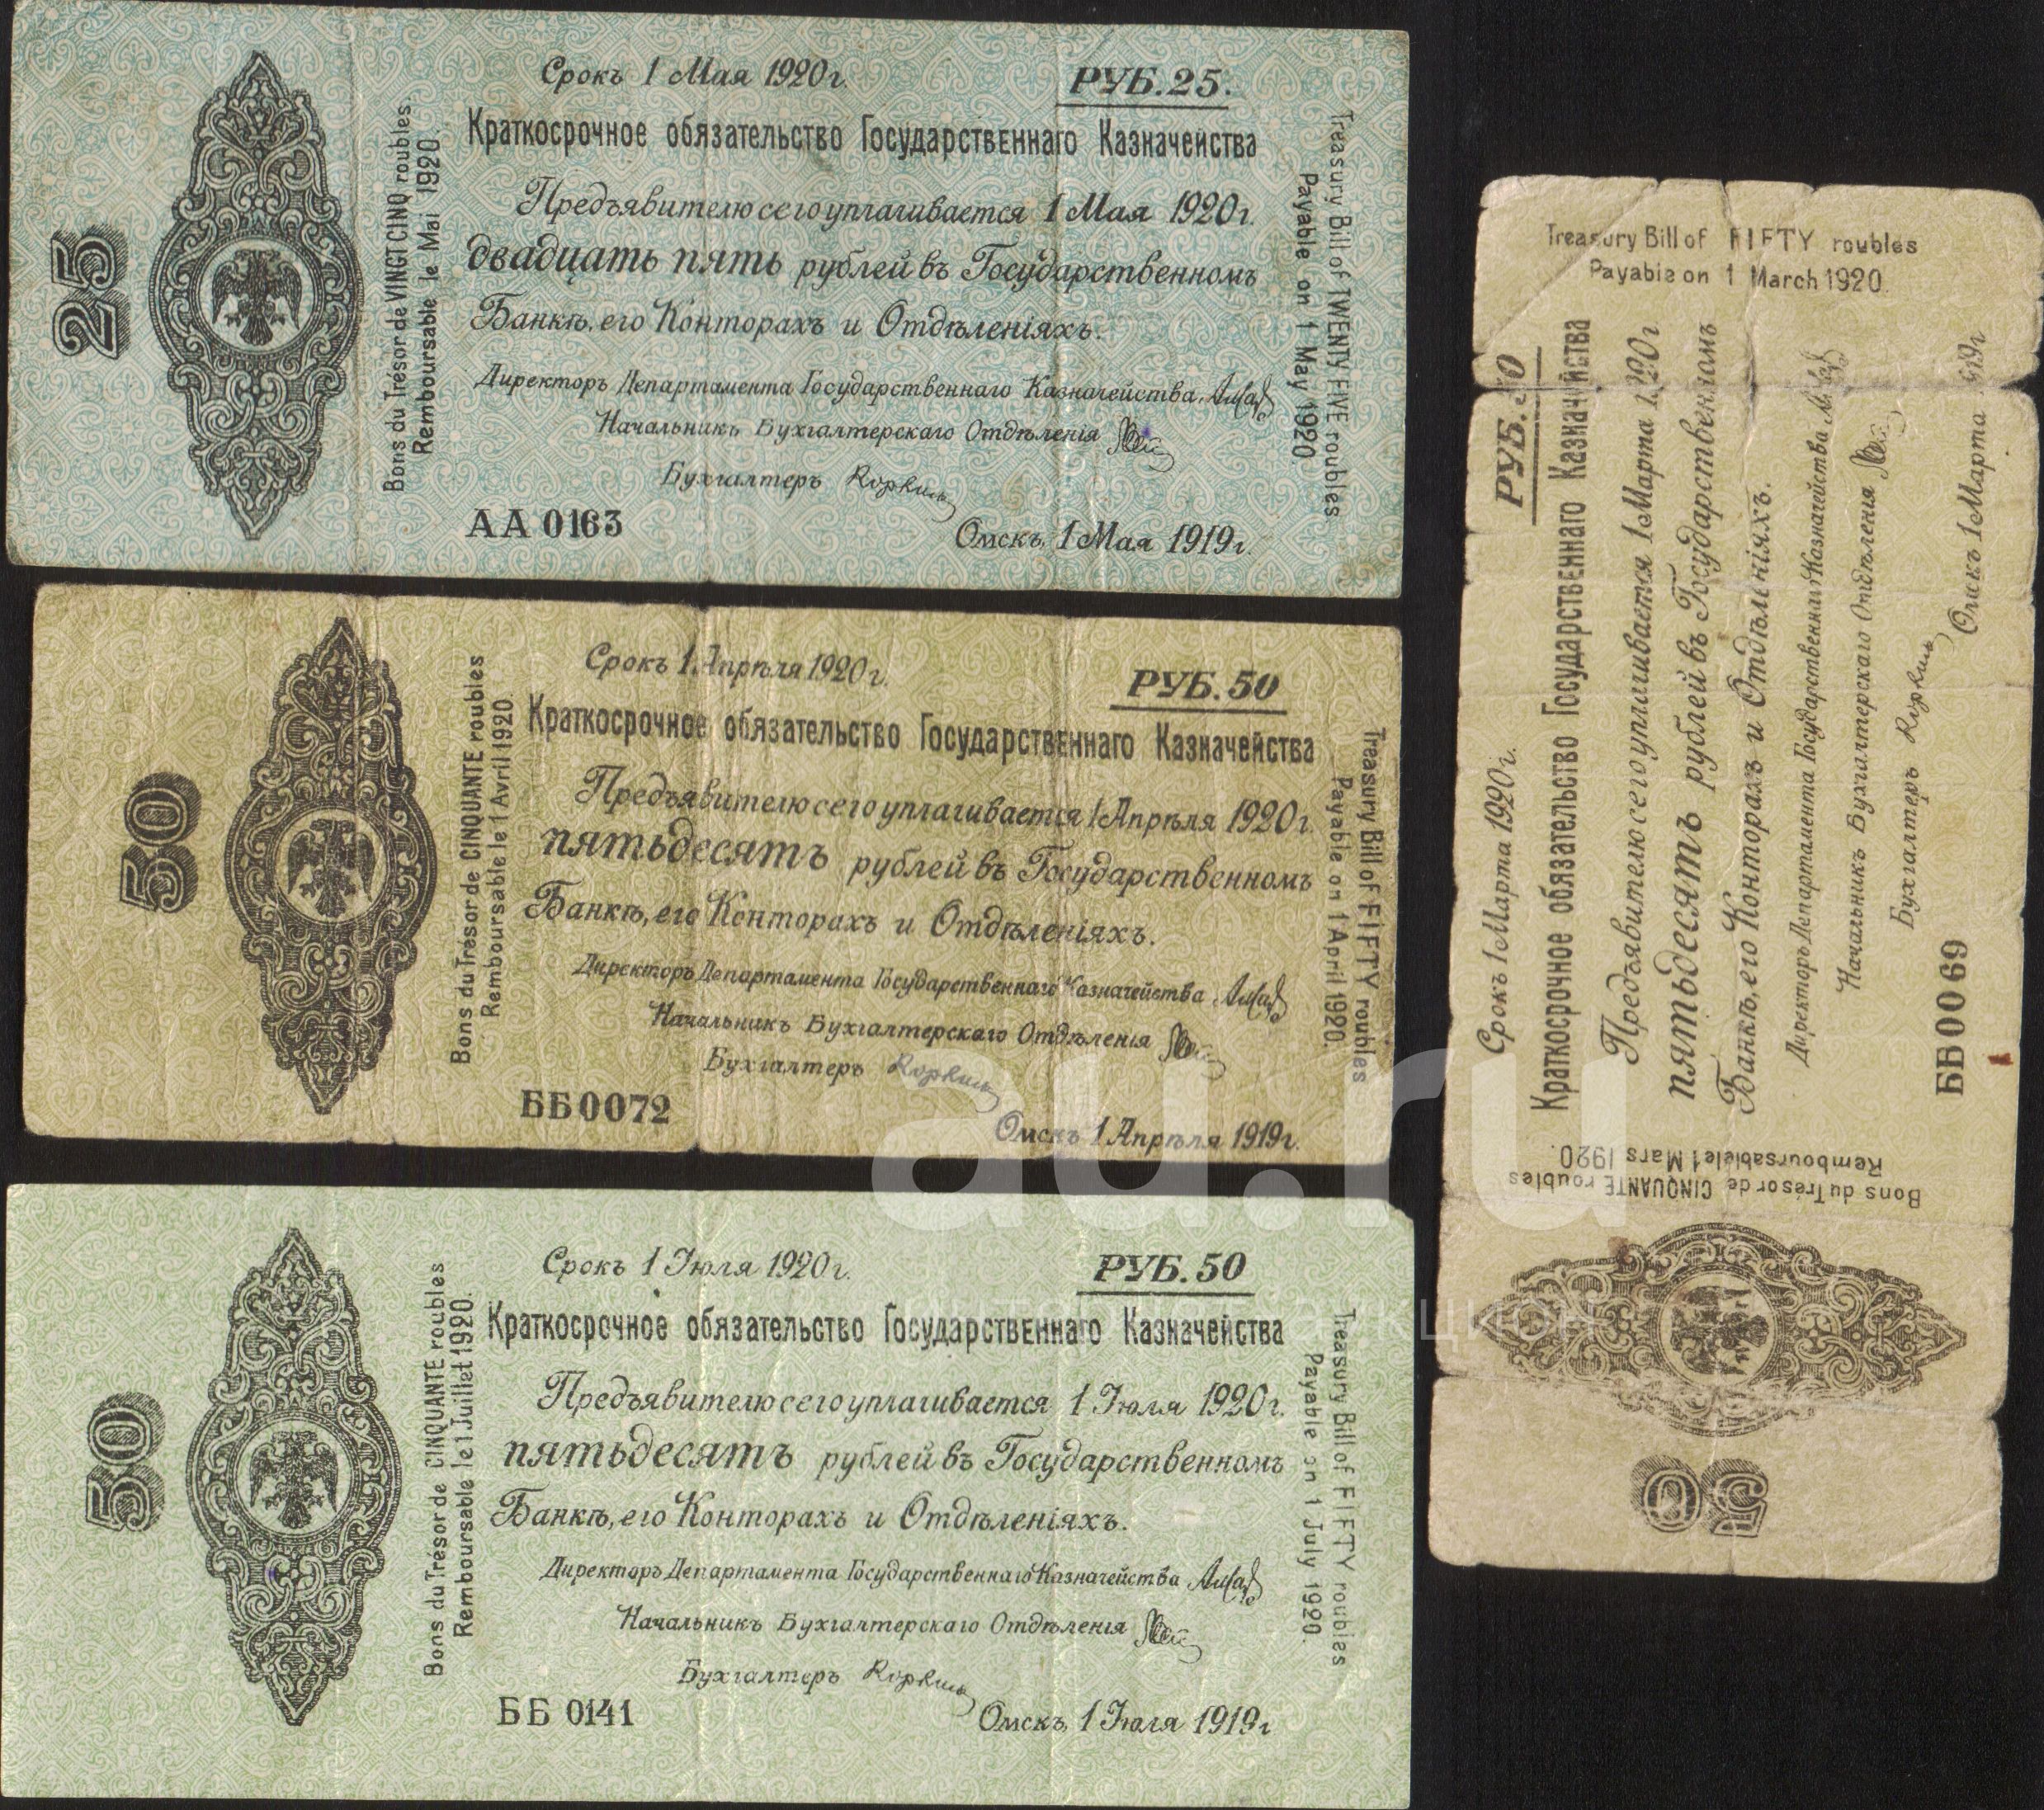 25
Bons du Trésor de VINGT CINQ roubles
Remboursable le Mai 1920.
Срокъ 1 Мая 1920 г.
РУБ. 25.
Краткосрочное обязательство Государственнаго Казначейства
Предъявителю сего уплачивается 1 Мая 1920 г.
двадцать пять рублей въ Государственномъ
Банкѣ, его Конторахъ и Отдѣленіяхъ.
Директоръ Департамента Государственнаго Казначейства
Начальникъ Бухгалтерскаго Отдѣленія
Бухгалтеръ
АА 0163
Омскъ, 1 Мая 1919 г.
Treasury Bill of TWENTY FIVE roubles
Payable on 1 May 1920.
50
Bons du Trésor de CINQUANTE roubles
Remboursable le 1 Avril 1920.
Срокъ 1 Апрѣля 1920 г.
РУБ. 50
Краткосрочное обязательство Государственнаго Казначейства
Предъявителю сего уплачивается 1 Апрѣля 1920 г.
пятьдесятъ рублей въ Государственномъ
Банкѣ, его Конторахъ и Отдѣленіяхъ.
Директоръ Департамента Государственнаго Казначейства
Начальникъ Бухгалтерскаго Отдѣленія
Бухгалтеръ
ББ 0072
Омскъ 1 Апрѣля 1919 г.
Treasury Bill of FIFTY roubles
Payable on 1 April 1920.
50
Bons du Trésor de CINQUANTE roubles
Remboursable le 1 Juillet 1920.
Срокъ 1 Іюля 1920 г.
РУБ. 50
Краткосрочное обязательство Государственнаго Казначейства
Предъявителю сего уплачивается 1 Іюля 1920 г.
пятьдесятъ рублей въ Государственномъ
Банкѣ, его Конторахъ и Отдѣленіяхъ.
Директоръ Департамента Государственнаго Казначейства
Начальникъ Бухгалтерскаго Отдѣленія
Бухгалтеръ
ББ 0141
Омскъ, 1 Іюля 1919 г
Treasury Bill of FIFTY roubles
Payable on 1 July 1920.
Treasury Bill of FIFTY roubles
Payable on 1 March 1920.
Срокъ 1 Марта 1920 г.
РУБ. 50
Краткосрочное обязательство Государственнаго Казначейства
Предъявителю сего уплачивается 1 Марта 1920 г
пятьдесятъ рублей въ Государственномъ
Банкѣ, его Конторахъ и Отдѣленіяхъ.
Директоръ Департамента Государственнаго Казначейства
Начальникъ Бухгалтерскаго Отдѣленія
Бухгалтеръ
ББ 0069
Омскъ 1 Марта 1919 г
Bons du Trésor de CINQUANTE roubles
Remboursable le 1 Mars 1920.
50
au.ru
аукцион